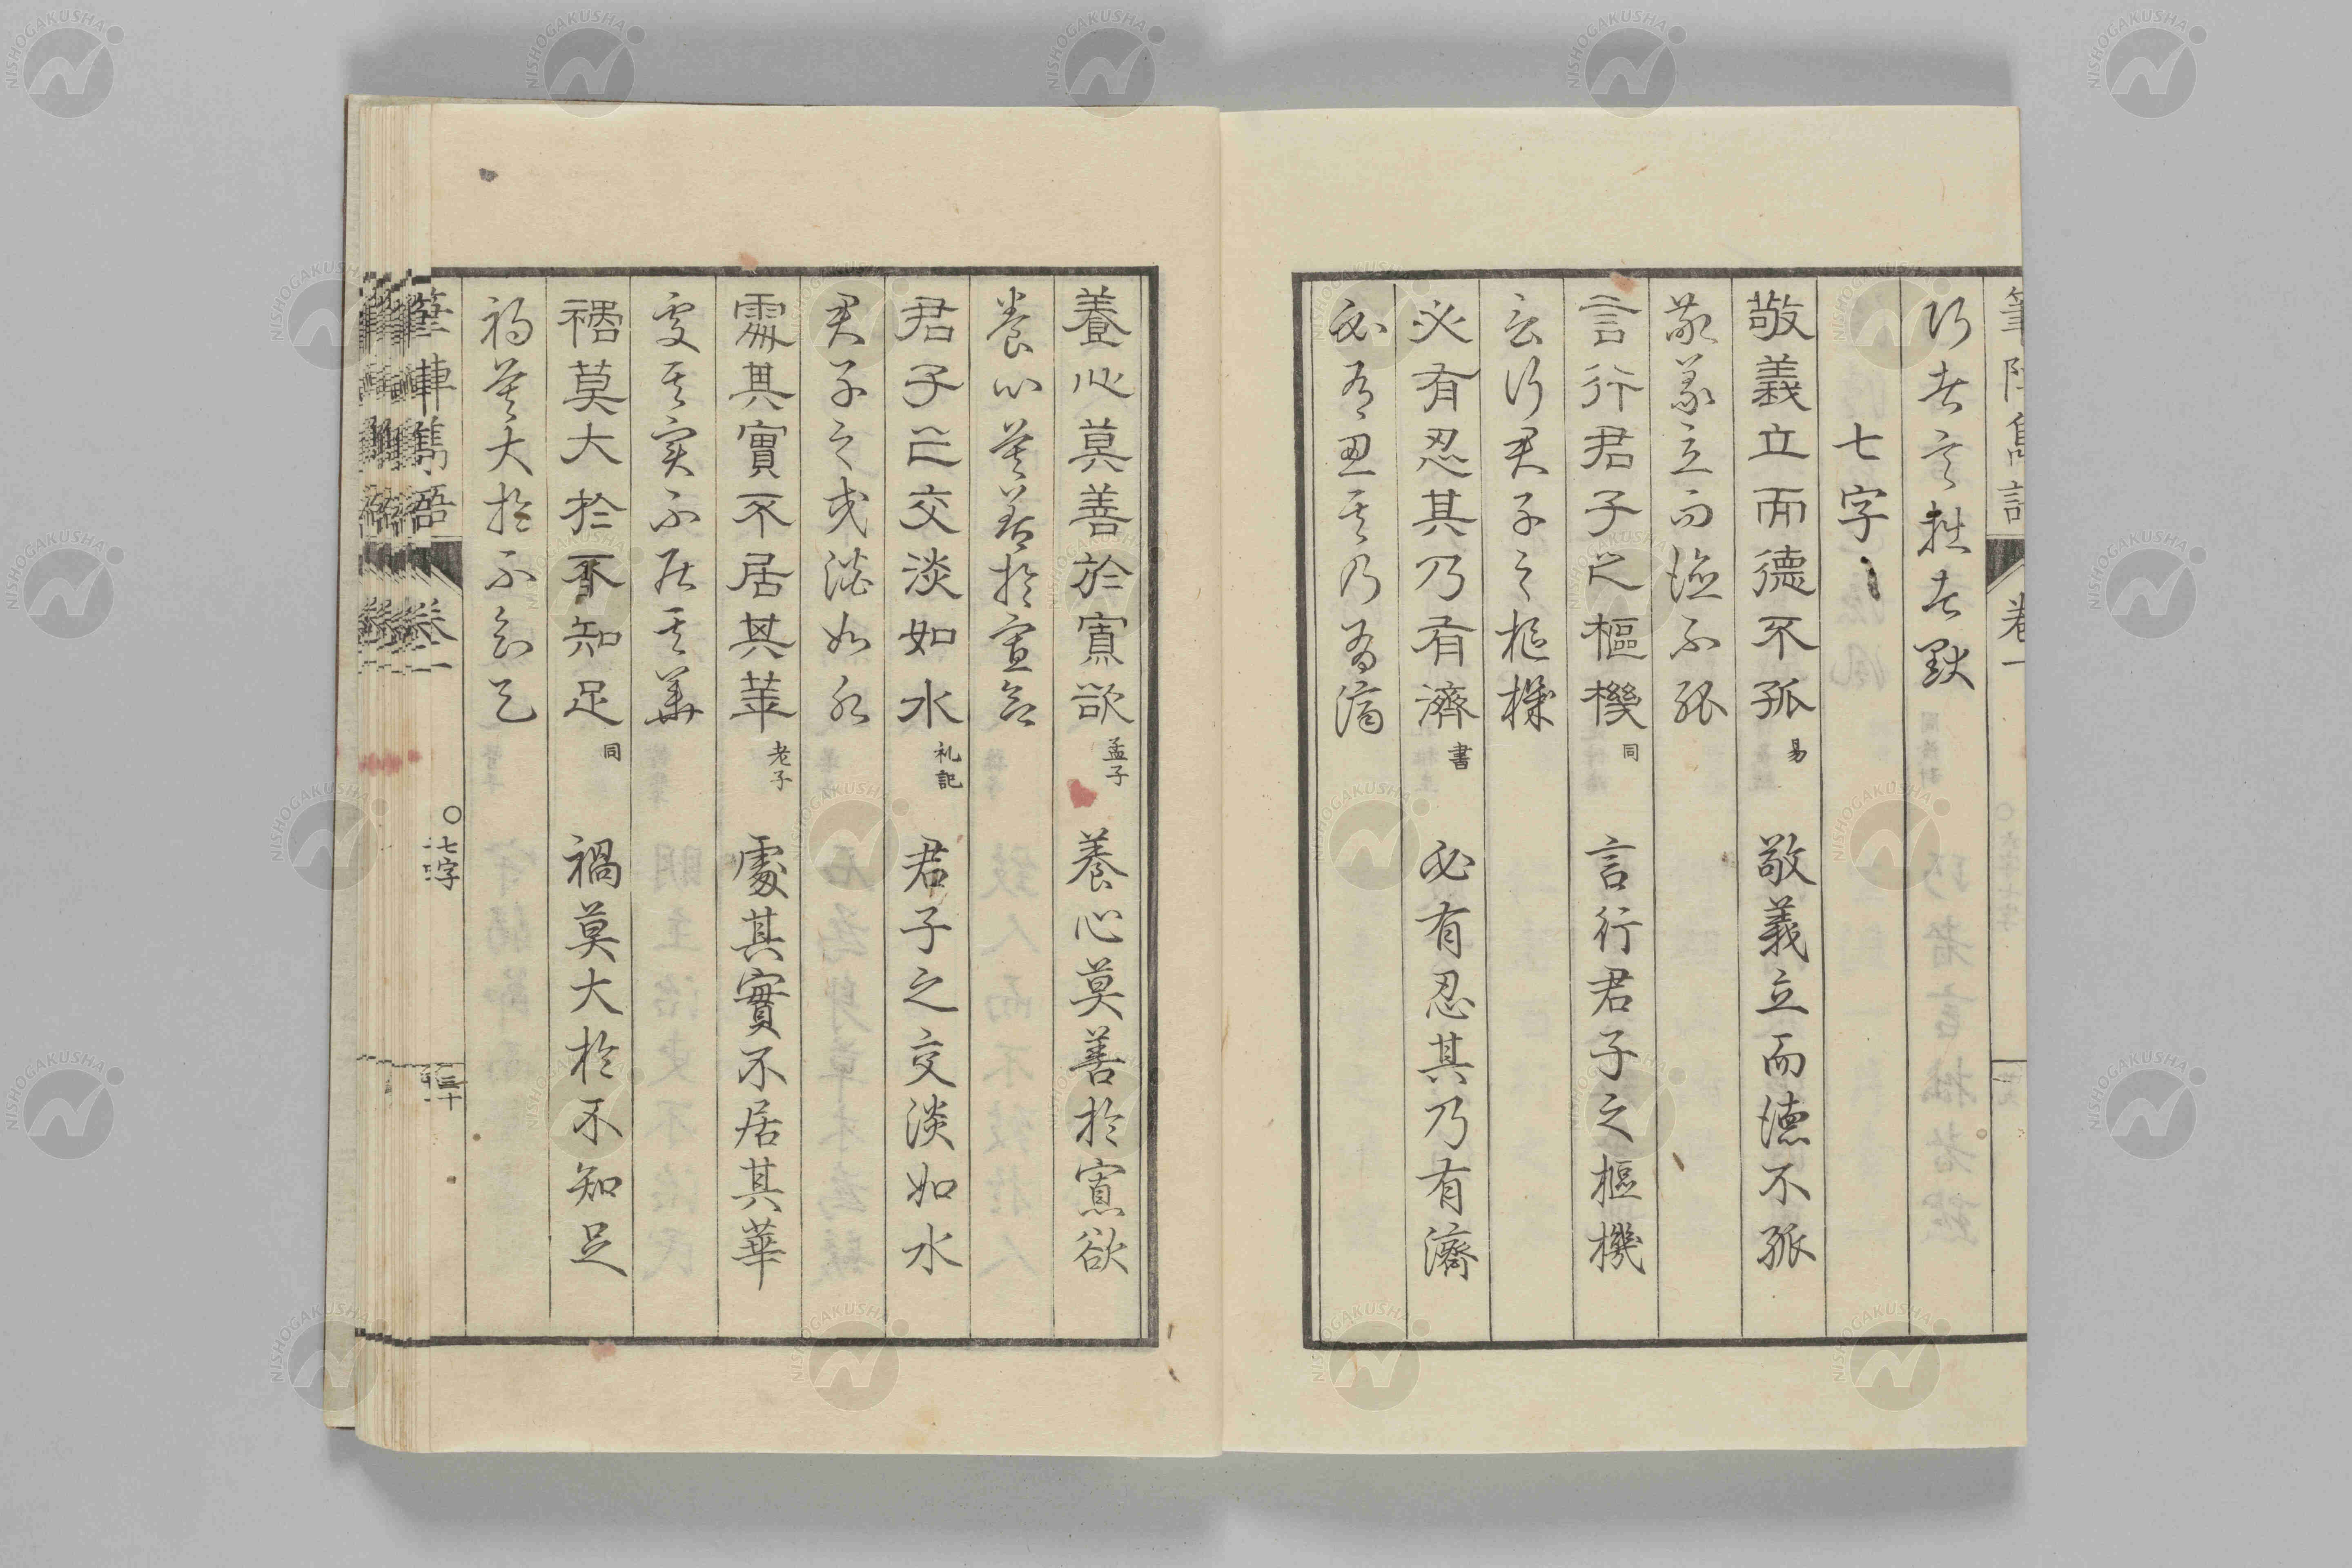 筆陣雋語
卷一
巧者言拙者默
七字
敬義立而德不孤 易 敬義立而德不孤
敬義立而德不孤
言行君子之樞機 同 言行君子之樞機
言行君子之樞機
必有忍其乃有濟 書 必有忍其乃有濟
必有忍其乃有濟
養心莫善於寡欲 孟子 養心莫善於寡欲
養心莫善於寡欲
君子之交淡如水 礼記 君子之交淡如水
君子之交淡如水
處其實不居其華 老子 處其實不居其華
處其實不居其華
禍莫大於不知足 同 禍莫大於不知足
禍莫大於不知足
筆陣雋語 卷一 〇七字 三十
NISHOGAKUSHA